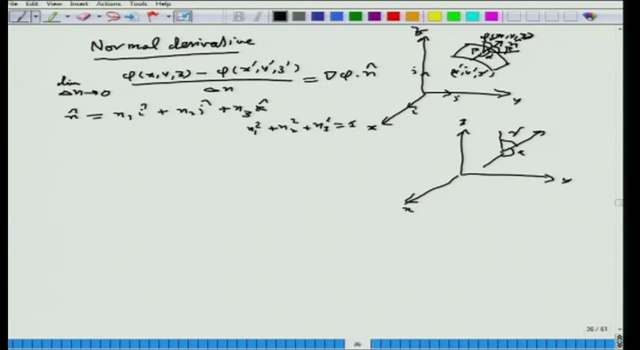 Edit View Insert Actions Tools Help
Normal derivative
lim Δn→0 φ(x,y,z) − φ(x',y',z') / Δn = ∇φ·n̂
n̂ = n₁î + n₂ĵ + n₃k̂
n₁² + n₂² + n₃² = 1
z
(x',y',z')
y
x
z
y
x
36 / 61
36